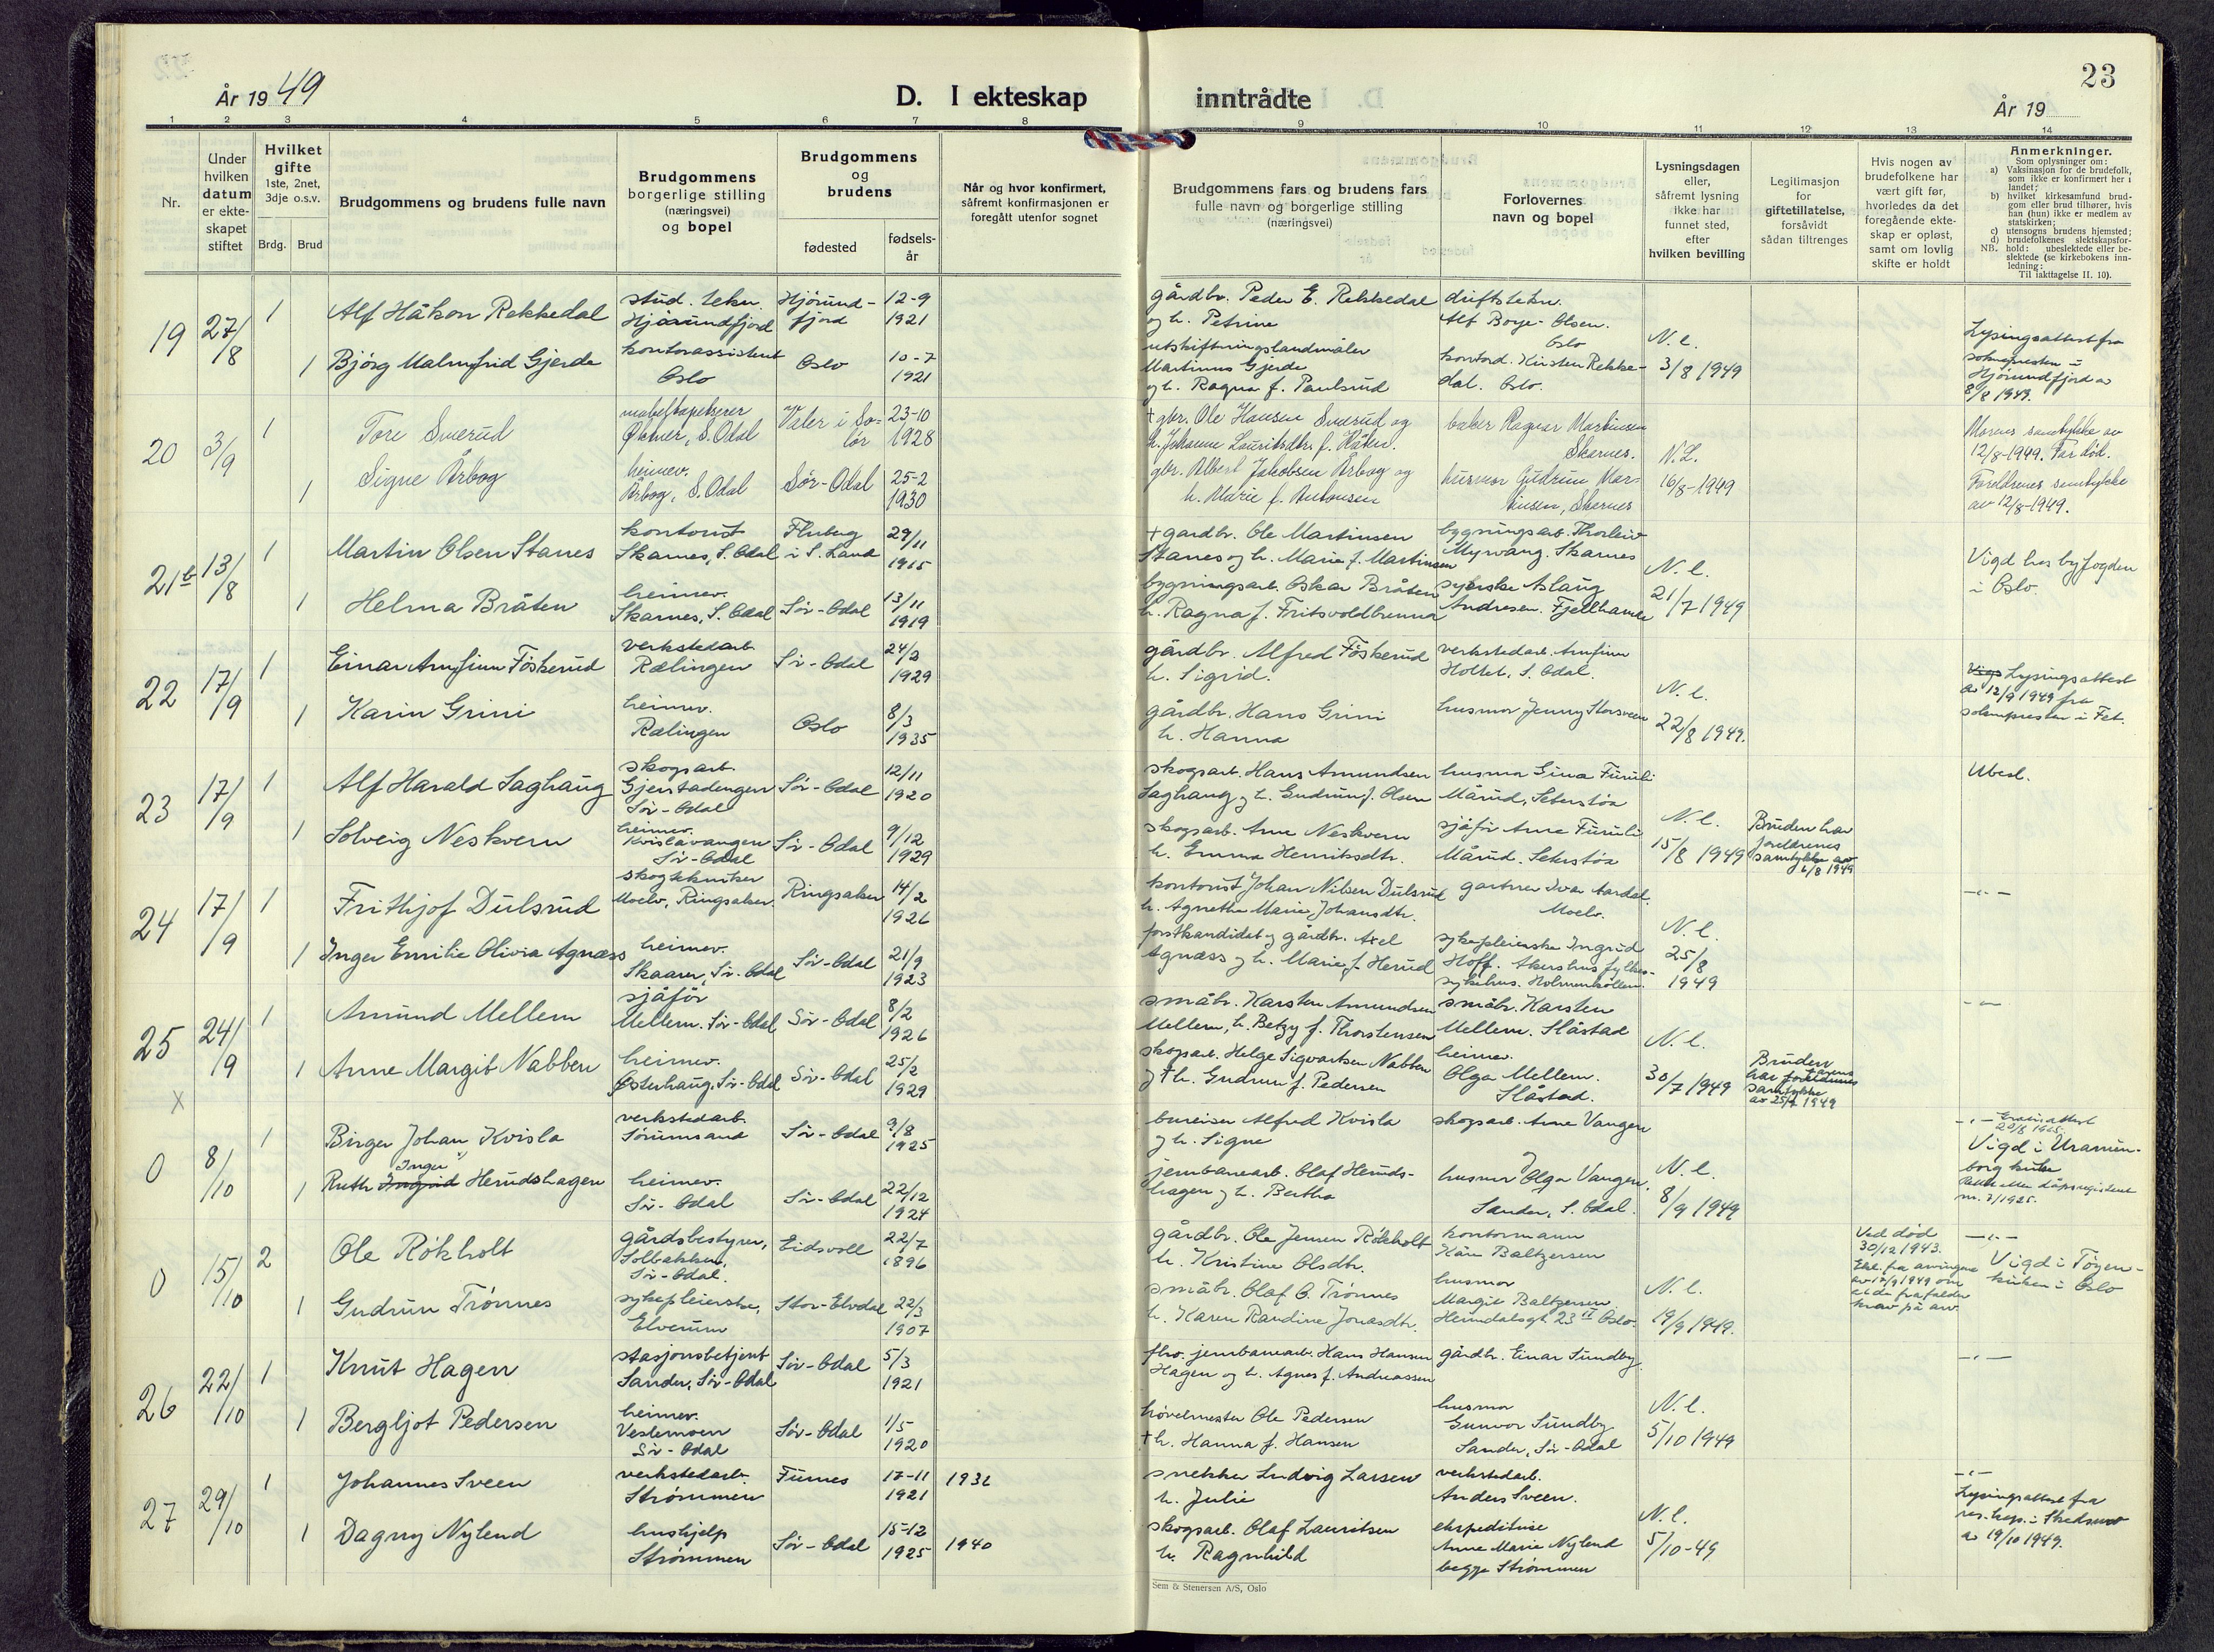 År 1949
D. I ekteskap inntrådte
23
År 19
1 2 3 4 5 6 7 8 9 10 11 12 13 14
Nr.
Under hvilken datum er ekteskapet stiftet
Hvilket gifte 1ste, 2net, 3dje o.s.v.
Brdg. Brud
Brudgommens og brudens fulle navn
Brudgommens borgerlige stilling (næringsvei) og bopel
Brudgommens og brudens
fødested
fødselsår
Når og hvor konfirmert, såfremt konfirmasjonen er foregått utenfor sognet
Brudgommens fars og brudens fars fulle navn og borgerlige stilling (næringsvei)
Forlovernes navn og bopel
Lysningsdagen eller, såfremt lysning ikke har funnet sted, efter hvilken bevilling
Legitimasjon for giftetillatelse, forsåvidt sådan tiltrenges
Hvis nogen av brudefolkene har vært gift før, hvorledes da det foregående ekteskap er opløst, samt om lovlig skifte er holdt
Anmerkninger.
Som oplysninger om:
a) Vaksinasjon for de brudefolk, som ikke er konfirmert her i landet;
b) hvilket kirkesamfund brudgom eller brud tilhører, hvis han (hun) ikke er medlem av statskirken;
c) utensogns brudens hjemsted;
d) brudefolkenes slektskapsforhold: ubeslektede eller beslektede (se kirkebokens innledning:
NB. Til iakttagelse II. 10).
19 27/8 1 Alf Håkon Rekkedal stud. tekn. Hjørundfjord Hjørundfjord 12-9 1921
gårdbr. Peder E. Rekkedal og h. Petrine
driftstekn. Alf Boye-Olsen. Oslo
1 Bjørg Malmfrid Gjerde kontorassistent Oslo Oslo 10-7 1921
utskiftningslandmåler Martinus Gjerde og h. Ragna f. Paulsrud
kontord. Kirsten Rekkedal. Oslo.
N. l. 3/8 1949
Lysingsattest fra soknepresten i Hjørundfjord av 8/8 1949.
20 3/9 1 Tore Sverud møbeltapetserer Økner, S. Odal Våler i Solør 23-10 1928
† gbr. Ole Hansen Sverud og h. Johanne Lauritsdtr. f. Håten.
baker Ragnar Martinsen Skarnes.
1 Signe Årbog heimev. Årbog, S. Odal Sør-Odal 25-2 1930
gbr. Albert Jakobsen Årbog og h. Marie f. Antonsen
husmor Gudrun Martinsen, Skarnes
N. L. 16/8-1949
Morens samtykke av 12/8-1949. Far død. Foreldrenes samtykke av 12/8-1949.
21b 13/8 1 Martin Olsen Stanes kontorist Skarnes, S. Odal Fluberg i S. Land 29/11 1915
† gardbr. Ole Martinsen Stanes og h. Marie f. Martinsen
bygningsarb. Thorleiv Myrvang. Skarnes
1 Helma Bråten heimev. Skarnes, S. Odal Sør-Odal 13/11 1919
bygningsarb. Oskar Bråten h. Ragna f. Fritsvoldbrenna
syerske Aslaug Andresen. Fjellhamar
N. l. 21/7 1949
Vigd hos byfogden i Oslo.
22 17/9 1 Einar Arnfinn Føskerud verkstedarb. Rælingen Sør-Odal 24/2 1929
gårdbr. Alfred Føskerud h. Sigrid.
verkstedarb. Arnfinn Holtet, S. Odal.
1 Karin Grini heimev. Rælingen Oslo 8/3 1935
gårdbr. Hans Grini h. Hanna
husmor Jenny Storsveen
N. l. 22/8 1949.
Lysingsattest av 12/9 1949 fra soknepresten i Fet.
23 17/9 1 Alf Harald Saghaug skogsarb. Gjerstadengen Sør-Odal Sør-Odal 12/11 1920
skogsarb. Hans Amundsen Saghaug og h. Gudrun f. Olsen
husmor Gina Furuli Mårud, Seterstøa
1 Solveig Neskvern heimev. Kvislavangen Sør-Odal Sør-Odal 9/12 1929
skogsarb. Arne Neskvern h. Emma Henriksdtr.
sjåfør Arne Furuli Mårud. Seterstøa
N. l. 15/8 1949
Bruden har foreldrenes samtykke av 6/8 1949
Ubesl.
24 17/9 1 Frithjof Dulsrud skogtekniker Moelv, Ringsaker. Ringsaker 14/2 1926
kontorist Johan Nilsen Dulsrud h. Agnethe Marie Johansdtr.
gartner Ivar Aardal. Moelv.
1 Inger Emilie Olivia Agnæss heimev. Skaarer, Sør-Odal Sør-Odal 21/9 1923
forstkandidat og gårdbr. Axel Agnæss og h. Marie f. Herud
sykepleierske Ingrid Hoff. Akershus fylkessykehus. Holmenkollen.
N. l. 25/8 1949
-"-
25 24/9 1 Amund Mellem sjåfør Mellem. Sør-Odal Sør-Odal 8/2 1926
småbr. Karsten Amundsen Mellem, h. Betzy f. Thorstensen
småbr. Karsten Mellem. Slåstad
1 Anne Margit Nabben heimev. Østerhaug, Sør-Odal Sør-Odal 25/2 1929
skogsarb. Helge Sigvartsen Nabben og † h. Gudrun f. Pedersen
heimev. Olga Mellem. Slåstad.
N. l. 30/7 1949
Bruden har farens foreldrenes samtykke av 25/7 1949
-"-
X
0 8/10 1 Birger Johan Kvisla verkstedarb. Sørumsand Sør-Odal 9/8 1925
bureiser Alfred Kvisla og h. Signe
skogsarb. Arne Vangen
1 Ruth Inger Ingrid Herudshagen heimev. Sør-Odal Sør-Odal 22/12 1924
jernbanearb. Olaf Herudshagen og h. Bertha
husmor Olga Vangen, Sander, S. Odal.
N. l. 8/9 1949
-"- Vigd i Uranienborg kirke
Rettet etter dåpsregisteret nr. 7/1925.
0 15/10 2 Ole Røkholt gårdsbestyrer, Solbakken, Sør-Odal. Eidsvoll 22/7 1896
gårdbr. Ole Jensen Røkholt h. Kristine Olsdtr.
kontormann Kåre Baltzersen
1 Gudrun Trønnes sykepleierske, Elverum Stor-Elvdal 22/3 1907
småbr. Olaf O. Trønnes h. Karen Randine Jonasdtr.
husmor Margit Baltzersen Heimdalsgt. 23 II Oslo.
N. l. 19/9 1949.
Ved død 30/12 1943. Erkl. fra arvingene av 17/9 1949 om at de frafaller krav på arv.
-"- Vigd i Tøyenkirken i Oslo
26 22/10 1 Knut Hagen stasjonsbetjent Sander, Sør-Odal Sør-Odal 5/3 1921
fhv. jernbanearb. Hans Hansen Hagen og h. Agnes f. Andreassen
gårdbr. Einar Sundby.
1 Bergljot Pedersen heimev. Vestemoen Sør-Odal Sør-Odal 1/5 1920
høvelmester Ole Pedersen † h. Hanna f. Hansen
husmor Gunvor Sundby Sander, Sør-Odal
N. l. 5/10 1949
-"-
27 29/10 1 Johannes Sveen verkstedarb. Strømmen Furnes 17-11 1921 1936
snekker Ludvig Larsen h. Julie
verkstedarb. Anders Sveen.
1 Dagny Nylend hushjelp Strømmen Sør-Odal 15-12 1925 1940
skogsarb. Olaf Lauritsen h. Ragnhild
ekspeditrise Anne Marie Nylend begge Strømmen
N. l. 5/10-49
-"- Lysingsattest fra res. kap. i Skedsmo av 19/10 1949.
Sem & Stenersen A/S, Oslo